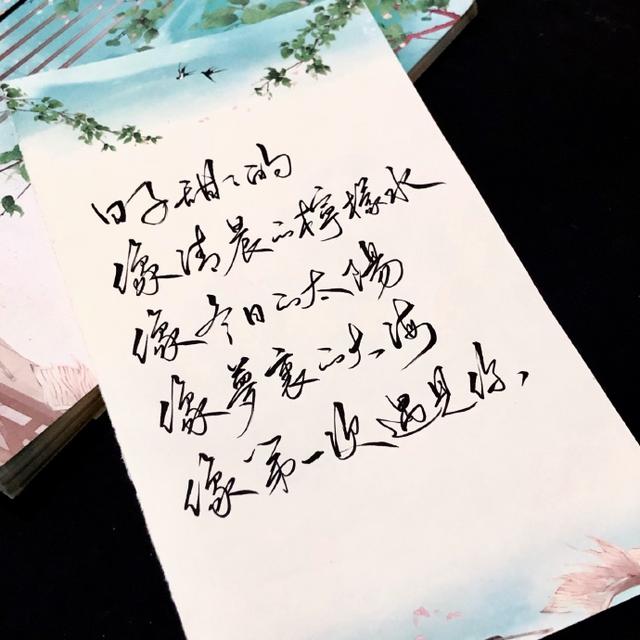 日子甜甜的
像清晨的檸檬水
像冬日的太陽
像夢裏的大海
像第一次遇見你、